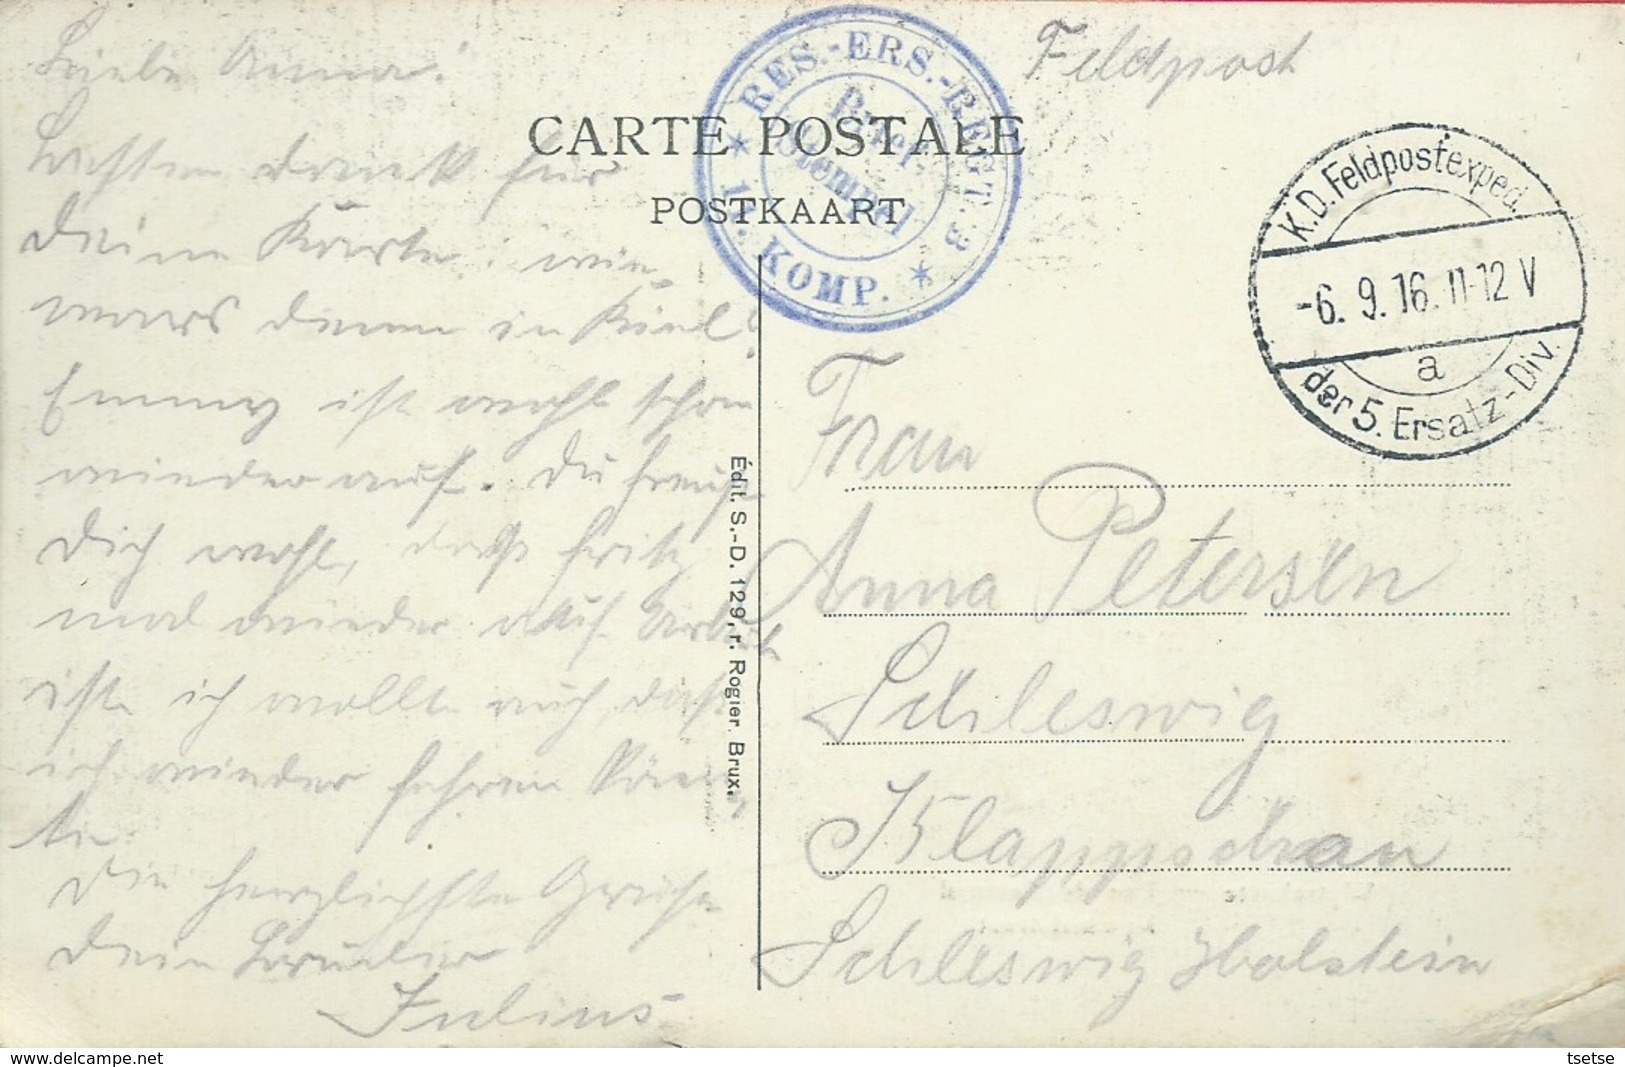 Feldpost
Liebe Anna!
Besten Dank für
Deine Karte. wie
wars denn in Kiel?
Emmy ist wohl schon
wieder auf. Du freust
Dich wohl, daß Fritz
mal wieder auf Urlaub
ist. ich wollte auch, daß
ich wieder fahren könn
te
Die herzlichste Grüße
Dein Bruder
Julius
CARTE POSTALE
POSTKAART
RES.-ERS.-REGT. 3
Brief-
stempel
11. KOMP.
K.D. Feldpostexped.
-6. 9. 16. 11-12 V
a
der 5. Ersatz-Div.
Édit. S.-D. 129, r. Rogier. Brux.
Frau
Anna Petersen
Schleswig
Klappschau
Schleswig Holstein
www.delcampe.net
tsetse